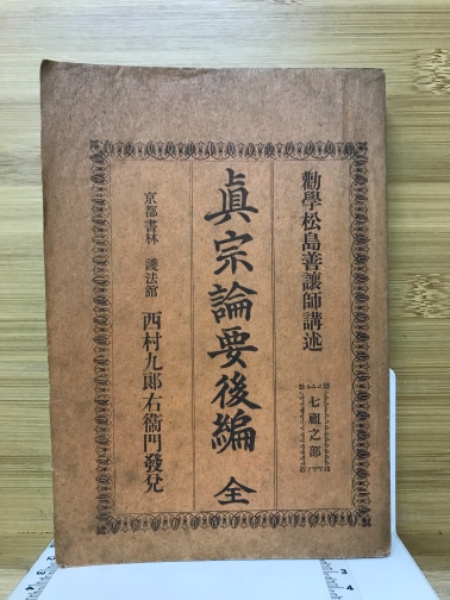 勸學松島善讓師講述
七祖之部
眞宗論要後編 全
京都書林 護法館 西村九郎右衞門發兌